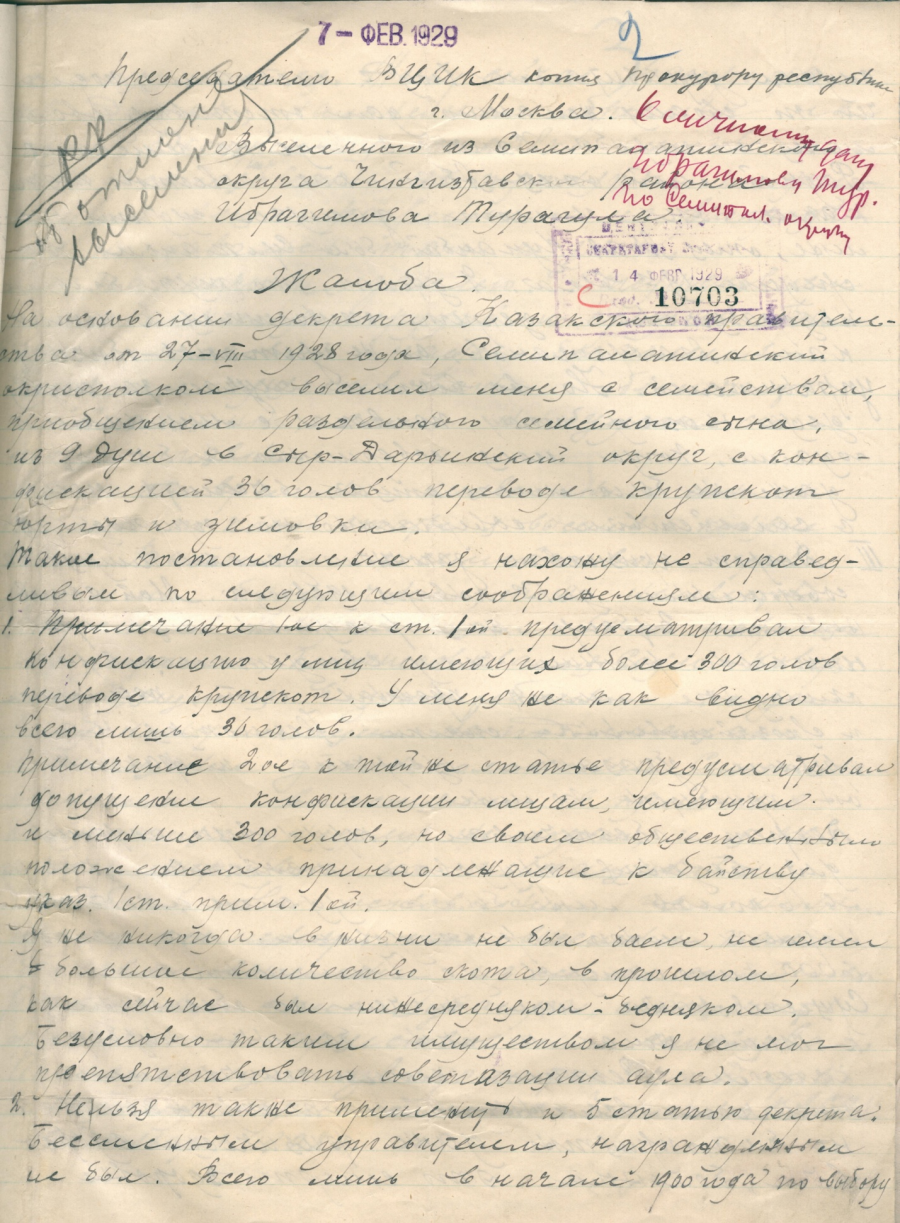 7 - ФЕВ. 1929
2
Председателю ВЦИК копия Прокурору республики
г. Москва.
Выселенного из Семипалатинского
округа Чингизтавск. района
Ибрагимова Турагула.
об отмене
выселения
К личному делу
Ибрагимова Тур.
по Семипал. округу
СЕКРЕТАРИАТ
14 ФЕВР 1929
10703
Жалоба.
На основании декрета Казакского правитель-
ства от 27-VIII 1928 года, Семипалатинский
окрисполком выселил меня с семейством,
приобщением раздельного семейного сына,
из 9 душ в Сыр-Дарьинский округ, с кон-
фискацией 36 голов переводе крупскот
юрты и зимовки.
Такое постановление я нахожу не справед-
ливым по следующим соображениям:
1. Примечание 1ое к ст. 1ой предусматривал
конфискацию у лиц имеющих более 300 голов
переводе крупскот. У меня же как видно
всего лишь 36 голов.
Примечание 2ое к той же статье предусматривал
допущение конфискации лицам, имеющим
и меньше 300 голов, но своем общественным
положением принадлежащие к байству
указ. 1ст. прим. 1ой.
Я же никогда в жизни не был баем, не имел
большие количество скота, в прошлом,
как сейчас был нижесредняком-бедняком.
Безусловно таким имуществом я не мог
препятствовать советизации аула.
2. Нельзя также применить и б статью декрета:
Бессменным управителем, награжденным
не был. Всего лишь в начале 1900 года по выбору